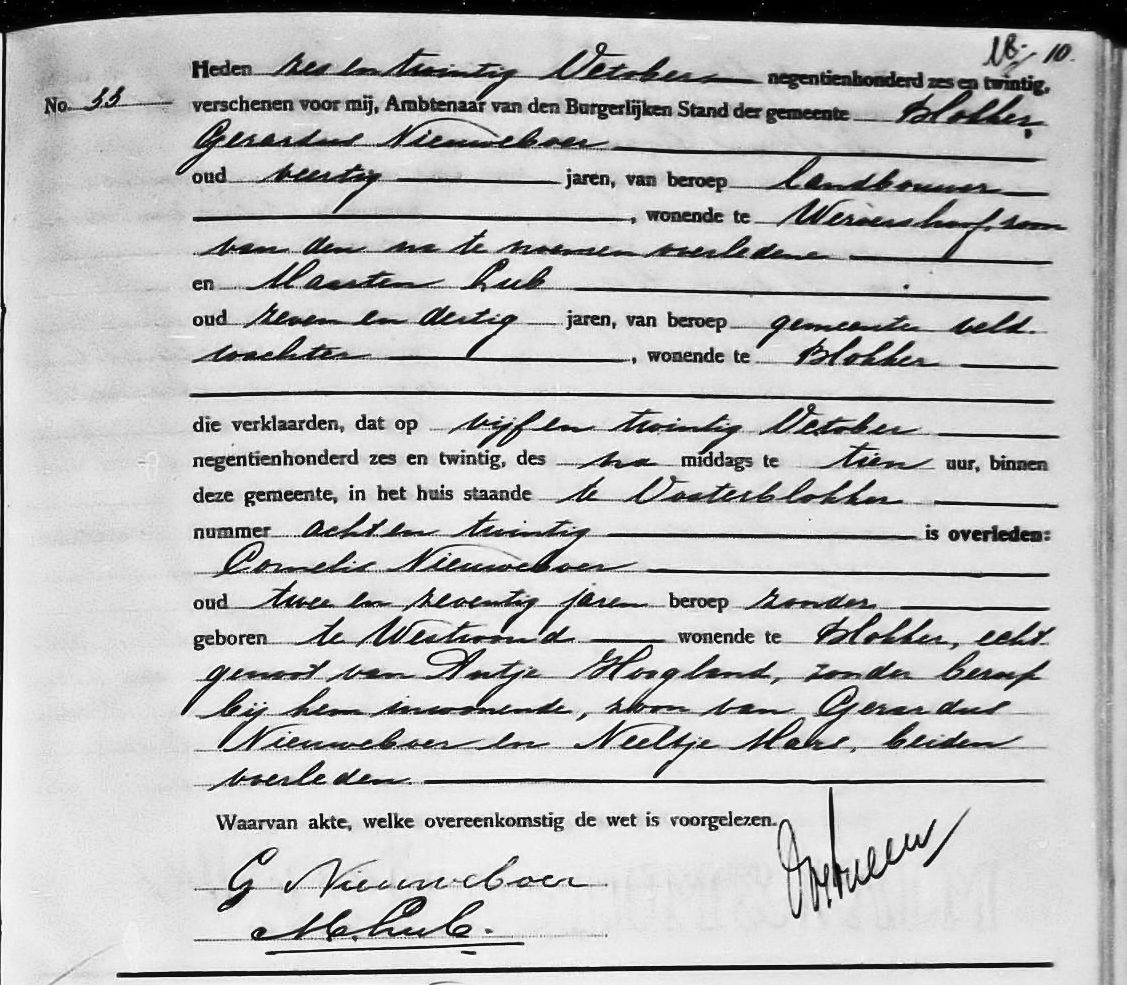 10.
Heden zes en twintig October negentienhonderd zes en twintig,
No. 33 verschenen voor mij, Ambtenaar van den Burgerlijken Stand der gemeente Blokker,
Gerardus Nieuweboer
oud veertig jaren, van beroep landbouwer
, wonende te Wervershoof, zoon
van den na te noemen overledene
en Maarten Lub
oud zeven en dertig jaren, van beroep gemeente veld
wachter , wonende te Blokker
die verklaarden, dat op vijf en twintig October
negentienhonderd zes en twintig, des na middags te tien uur, binnen
deze gemeente, in het huis staande te Oosterblokker
nummer acht en twintig is overleden:
Cornelis Nieuweboer
oud twee en zeventig jaren beroep zonder
geboren te Westwoud wonende te Blokker, echt
genoot van Antje Hoogland, zonder beroep
bij hem inwonende, zoon van Gerardus
Nieuweboer en Neeltje , beiden
overleden.
Waarvan akte, welke overeenkomstig de wet is voorgelezen.
G Nieuweboer
M. Lub.